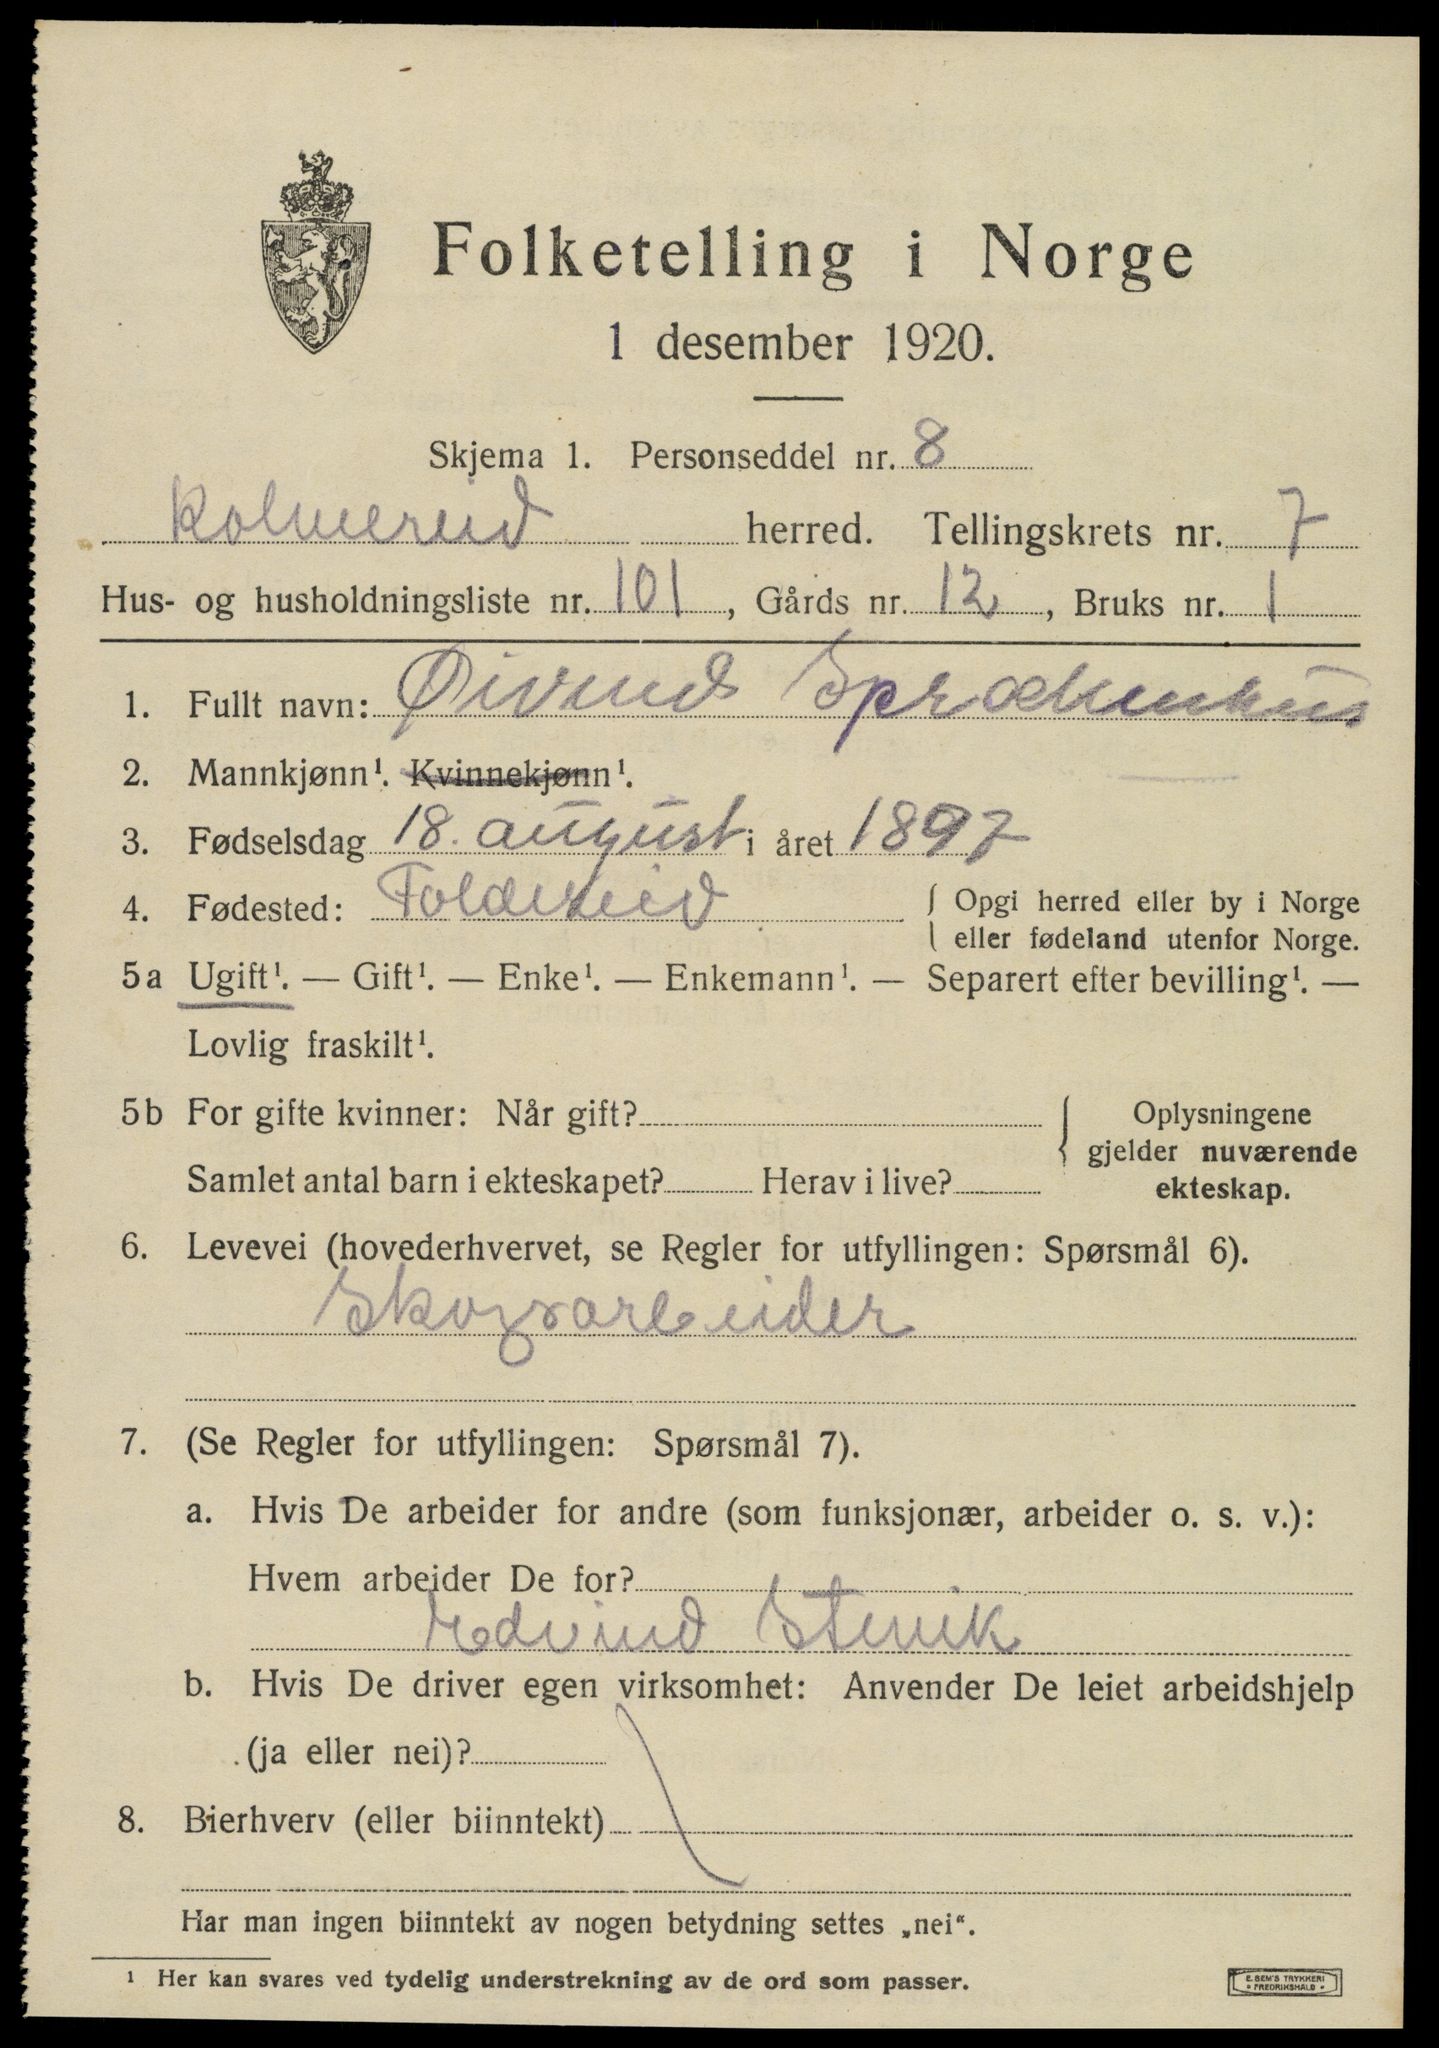 Folketelling i Norge
1 desember 1920.
Skjema 1. Personseddel nr. 8
Kolvereid herred. Tellingskrets nr. 7
Hus- og husholdningsliste nr. 101, Gårds nr. 12, Bruks nr. 1
1. Fullt navn: Øivind
2. Mannkjønn¹. Kvinnekjønn¹.
3. Fødselsdag 18. august i året 1897
4. Fødested: Foldereid { Opgi herred eller by i Norge
eller fødeland utenfor Norge.
5a Ugift¹. — Gift¹. — Enke¹. — Enkemann¹. — Separert efter bevilling¹. —
Lovlig fraskilt¹.
5b For gifte kvinner: Når gift? { Oplysningene
gjelder nuværende
Samlet antal barn i ekteskapet? Herav i live? ekteskap.
6. Levevei (hovederhvervet, se Regler for utfyllingen: Spørsmål 6).
Skogsarbeider
7. (Se Regler for utfyllingen: Spørsmål 7).
a. Hvis De arbeider for andre (som funksjonær, arbeider o. s. v.):
Hvem arbeider De for?
Edvind Stenik
b. Hvis De driver egen virksomhet: Anvender De leiet arbeidshjelp
(ja eller nei)?
8. Bierhverv (eller biinntekt)
Har man ingen biinntekt av nogen betydning settes „nei“.
¹ Her kan svares ved tydelig understrekning av de ord som passer.
E. SEM'S TRYKKERI
• FREDRIKSHALD •